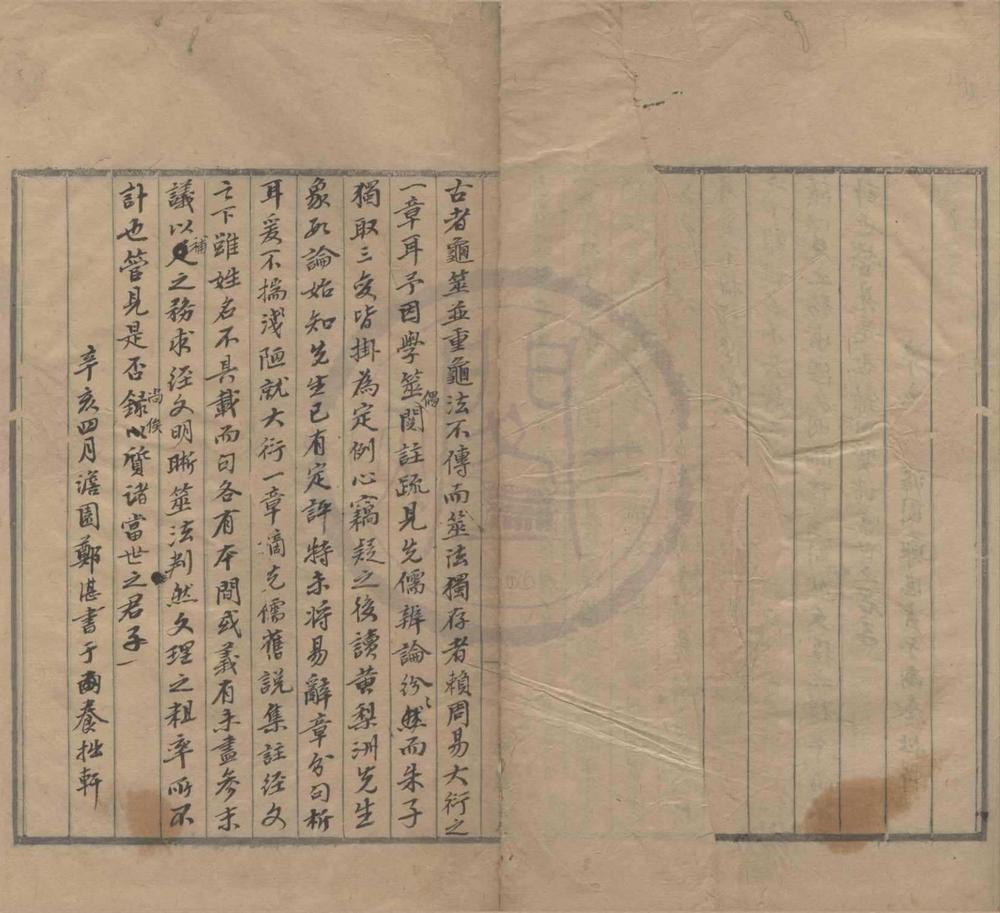 古者龜筮並重龜法不傳而筮法獨存者賴周易大衍之
一章耳予因學筮偶閱註疏見先儒辨論紛〻然而朱子
獨取三變皆掛為定例心竊疑之後讀黄梨洲先生
象數論始知先生已有定評特未將易辭章分句析
耳爰不揣淺陋就大衍一章摘先儒舊說集註經文
之下雖姓名不具載而句各有本間或義有未盡參末
議以補之務求經文明晰筮法判然文理之粗率所不
計也管見是否尚俟錄以質諸當世之君子
辛亥四月澹園鄭湛書于養拙軒